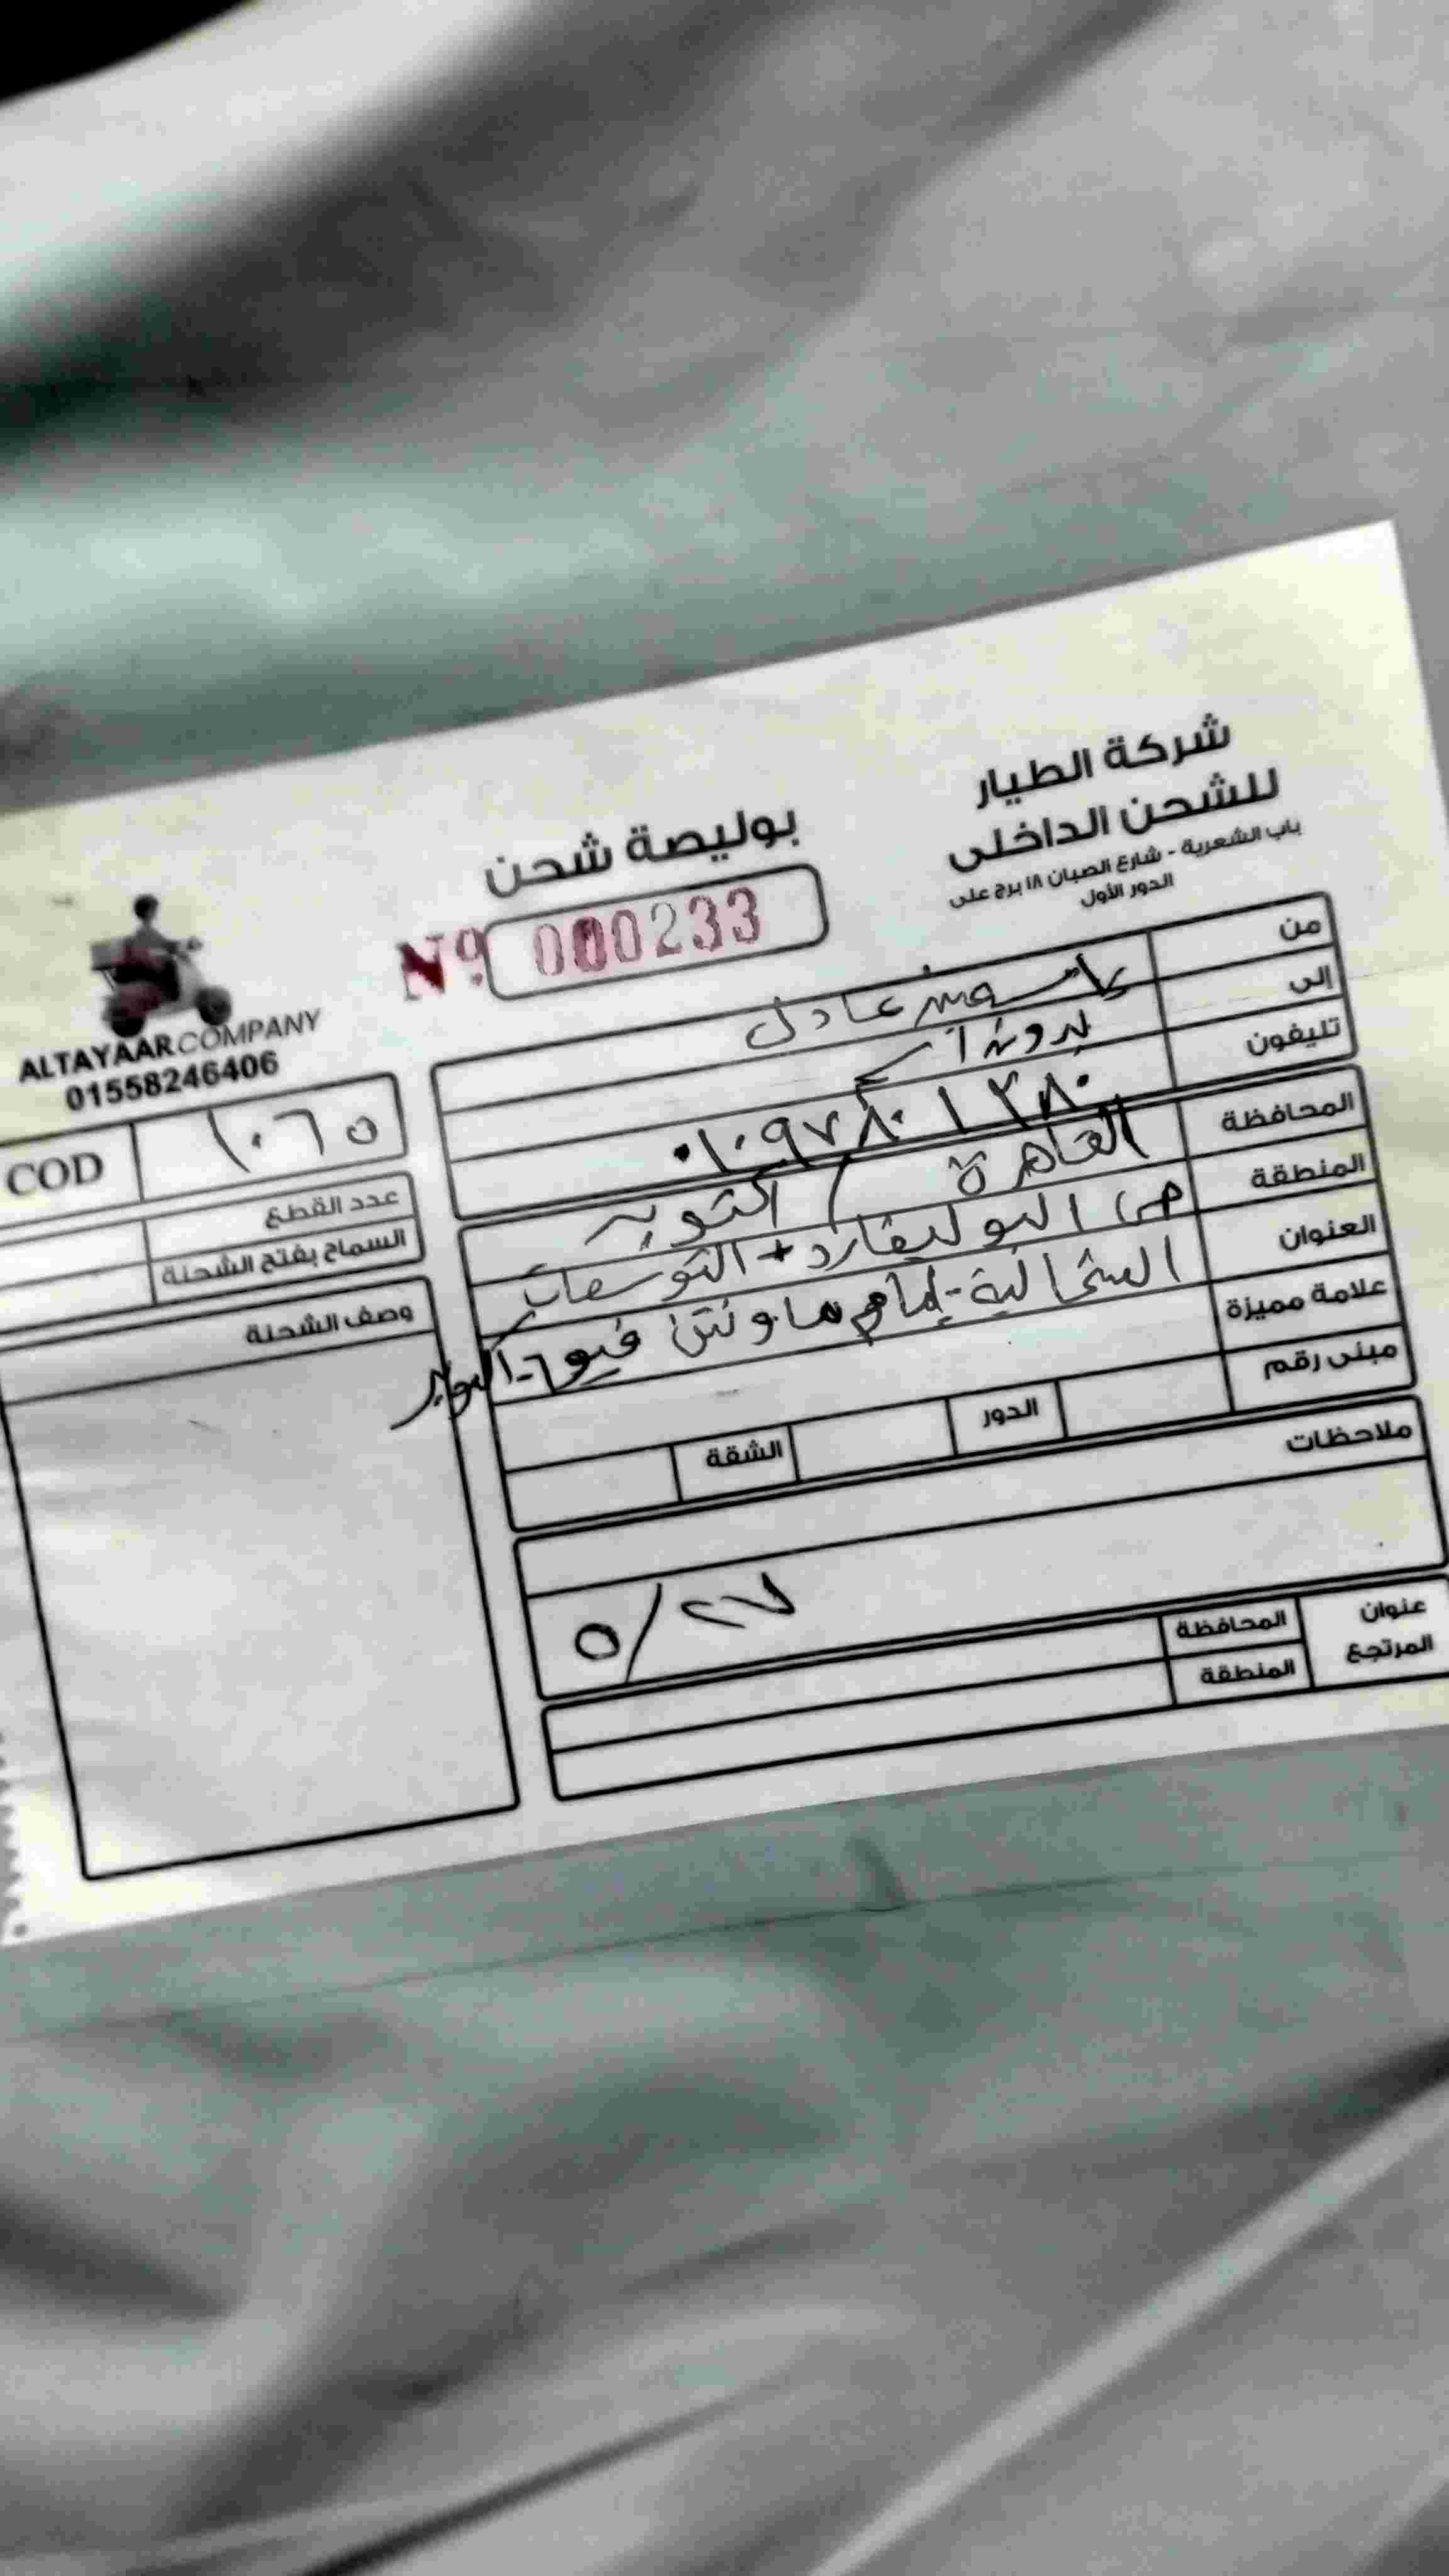 شركة الطيار
للشحن الداخلى
باب الشعرية - شارع الصبان ١٨ برج على
الدور الأول
بوليصة شحن
Nº 000233
ALTAYAAR COMPANY
01558246406
من ياسمين عادل
إلى
تليفون ٠١٠٩٧٨٠١٢٨٠
المحافظة القاهرة / اكتوبر
المنطقة حى البوليفارد + التوسعات
العنوان الشمالية - إمام ماونتن فيو ٦ - اكتوبر
علامة مميزة
مبنى رقم الدور الشقة
ملاحظات
٥/٢٧
عنوان المرتجع
المحافظة
المنطقة
COD ١٠٦٥
عدد القطع
السماح بفتح الشحنة
وصف الشحنة